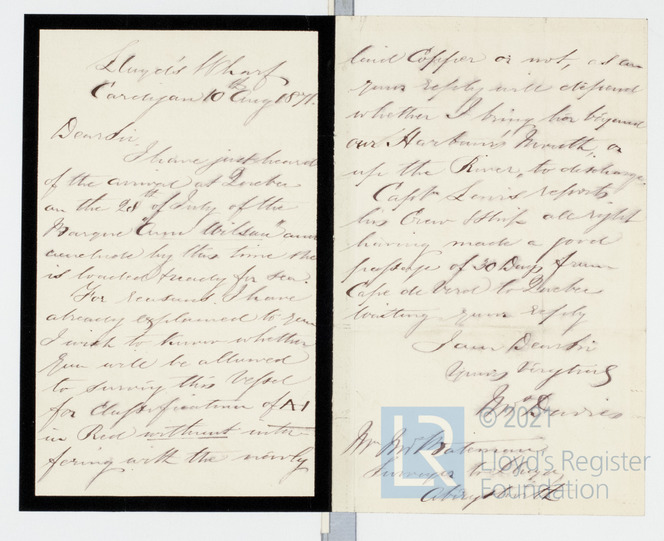 Lloyd's Wharf
Cardigan 10th Aug 1871.
Dear Sir,
I have just heard
of the arrival at Quebec
on the 28th of July of the
Barque "Ann Wilson" and
conclude by this time she
is loaded & ready for sea.
For reasons I have
already explained to you
I wish to know whether
you will be allowed
to survey this Vessel
for Classification of A1
in Red without inter-
fering with the newly
laid Copper or not, as on
your reply will depend
whether I bring her beyond
our Harbour's Mouth, or
up the River, to discharge.
Captn Lewis reports
his Crew & Ship all right
having made a good
passage of 30 Days from
Cape de Verd to Quebec
Waiting your reply
I am Dear Sir
Yours Very truly
Wm Davies
Mr Bateman
Surveyor to Lloyds
Aberystwith
LR
© 2021
Lloyd's Register
Foundation